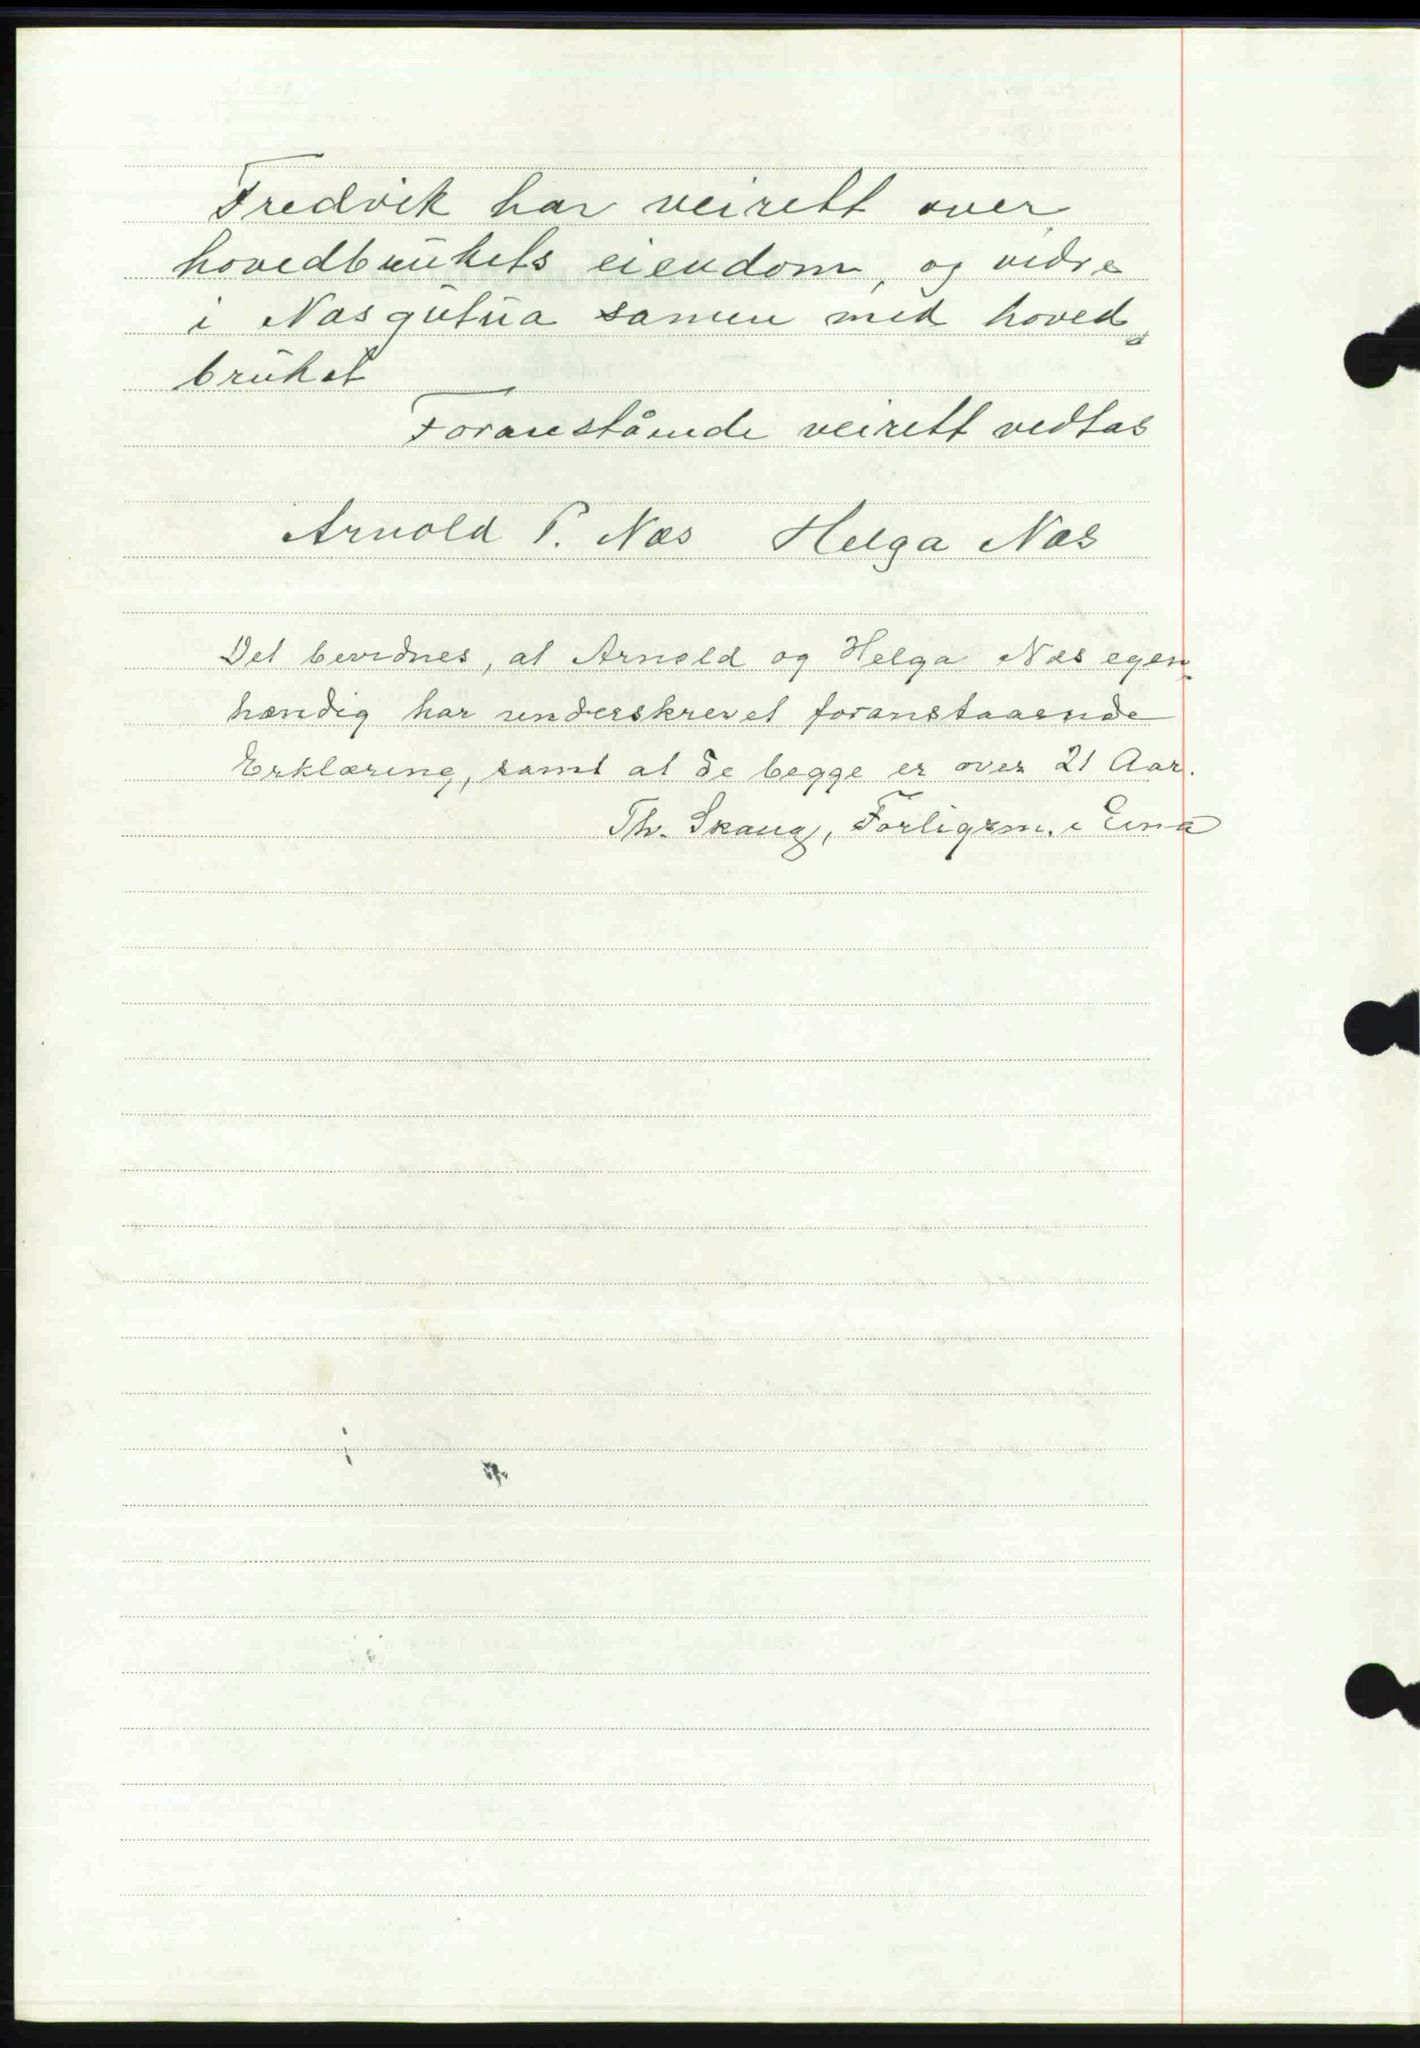 Fredvik har veirett over
hovedbrukets eiendom, og vidre
i Næsgutua samen med hoved-
bruket
Foranstående veirett vedtas
Arnold P. Næs Helga Næs
Det bevidnes, at Arnold og Helga Næs egen-
hændig har underskrevet foranstaaende
Erklæring, samt at de begge er over 21 Aar.
Th. Skaug, Forligsm. i Eina